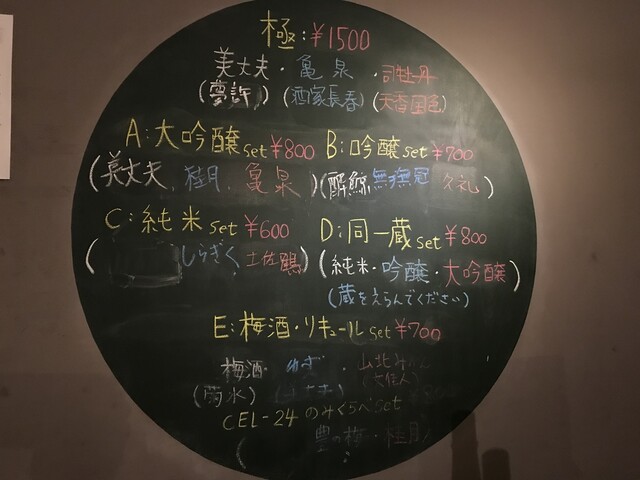 極:¥1500
美丈夫・亀泉・司牡丹
(夢許)(酒家長春)(天香国色)
A:大吟醸set¥800 B:吟醸set¥700
(美丈夫、桂月、亀泉)(酔鯨 無撫冠 久礼)
C:純米set¥600 D:同一蔵set¥800
(しらぎく 土佐鶴)(純米・吟醸・大吟醸)
(蔵をえらんでください)
E:梅酒・リキュールset¥700
梅酒・ゆず・山北み
(菊水)
CEL-24のみくらべset
(豊の梅・桂月)